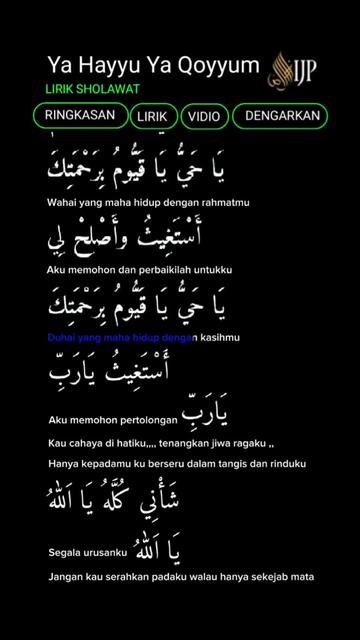 Ya Hayyu Ya Qoyyum IJP
LIRIK SHOLAWAT
RINGKASAN LIRIK VIDIO DENGARKAN
يَا حَيُّ يَا قَيُّومُ بِرَحْمَتِكَ
Wahai yang maha hidup dengan rahmatmu
أَسْتَغِيثُ وأَصْلِحْ لِي
Aku memohon dan perbaikilah untukku
يَا حَيُّ يَا قَيُّومُ بِرَحْمَتِكَ
Duhai yang maha hidup dengan kasihmu
أَسْتَغِيثُ يَارَبِّ
Aku memohon pertolongan يَارَبِّ
Kau cahaya di hatiku,,,, tenangkan jiwa ragaku ,,
Hanya kepadamu ku berseru dalam tangis dan rinduku
شَأْنِي كُلَّهُ يَا اَللهُ
Segala urusanku يَا اَللهُ
Jangan kau serahkan padaku walau hanya sekejab mata